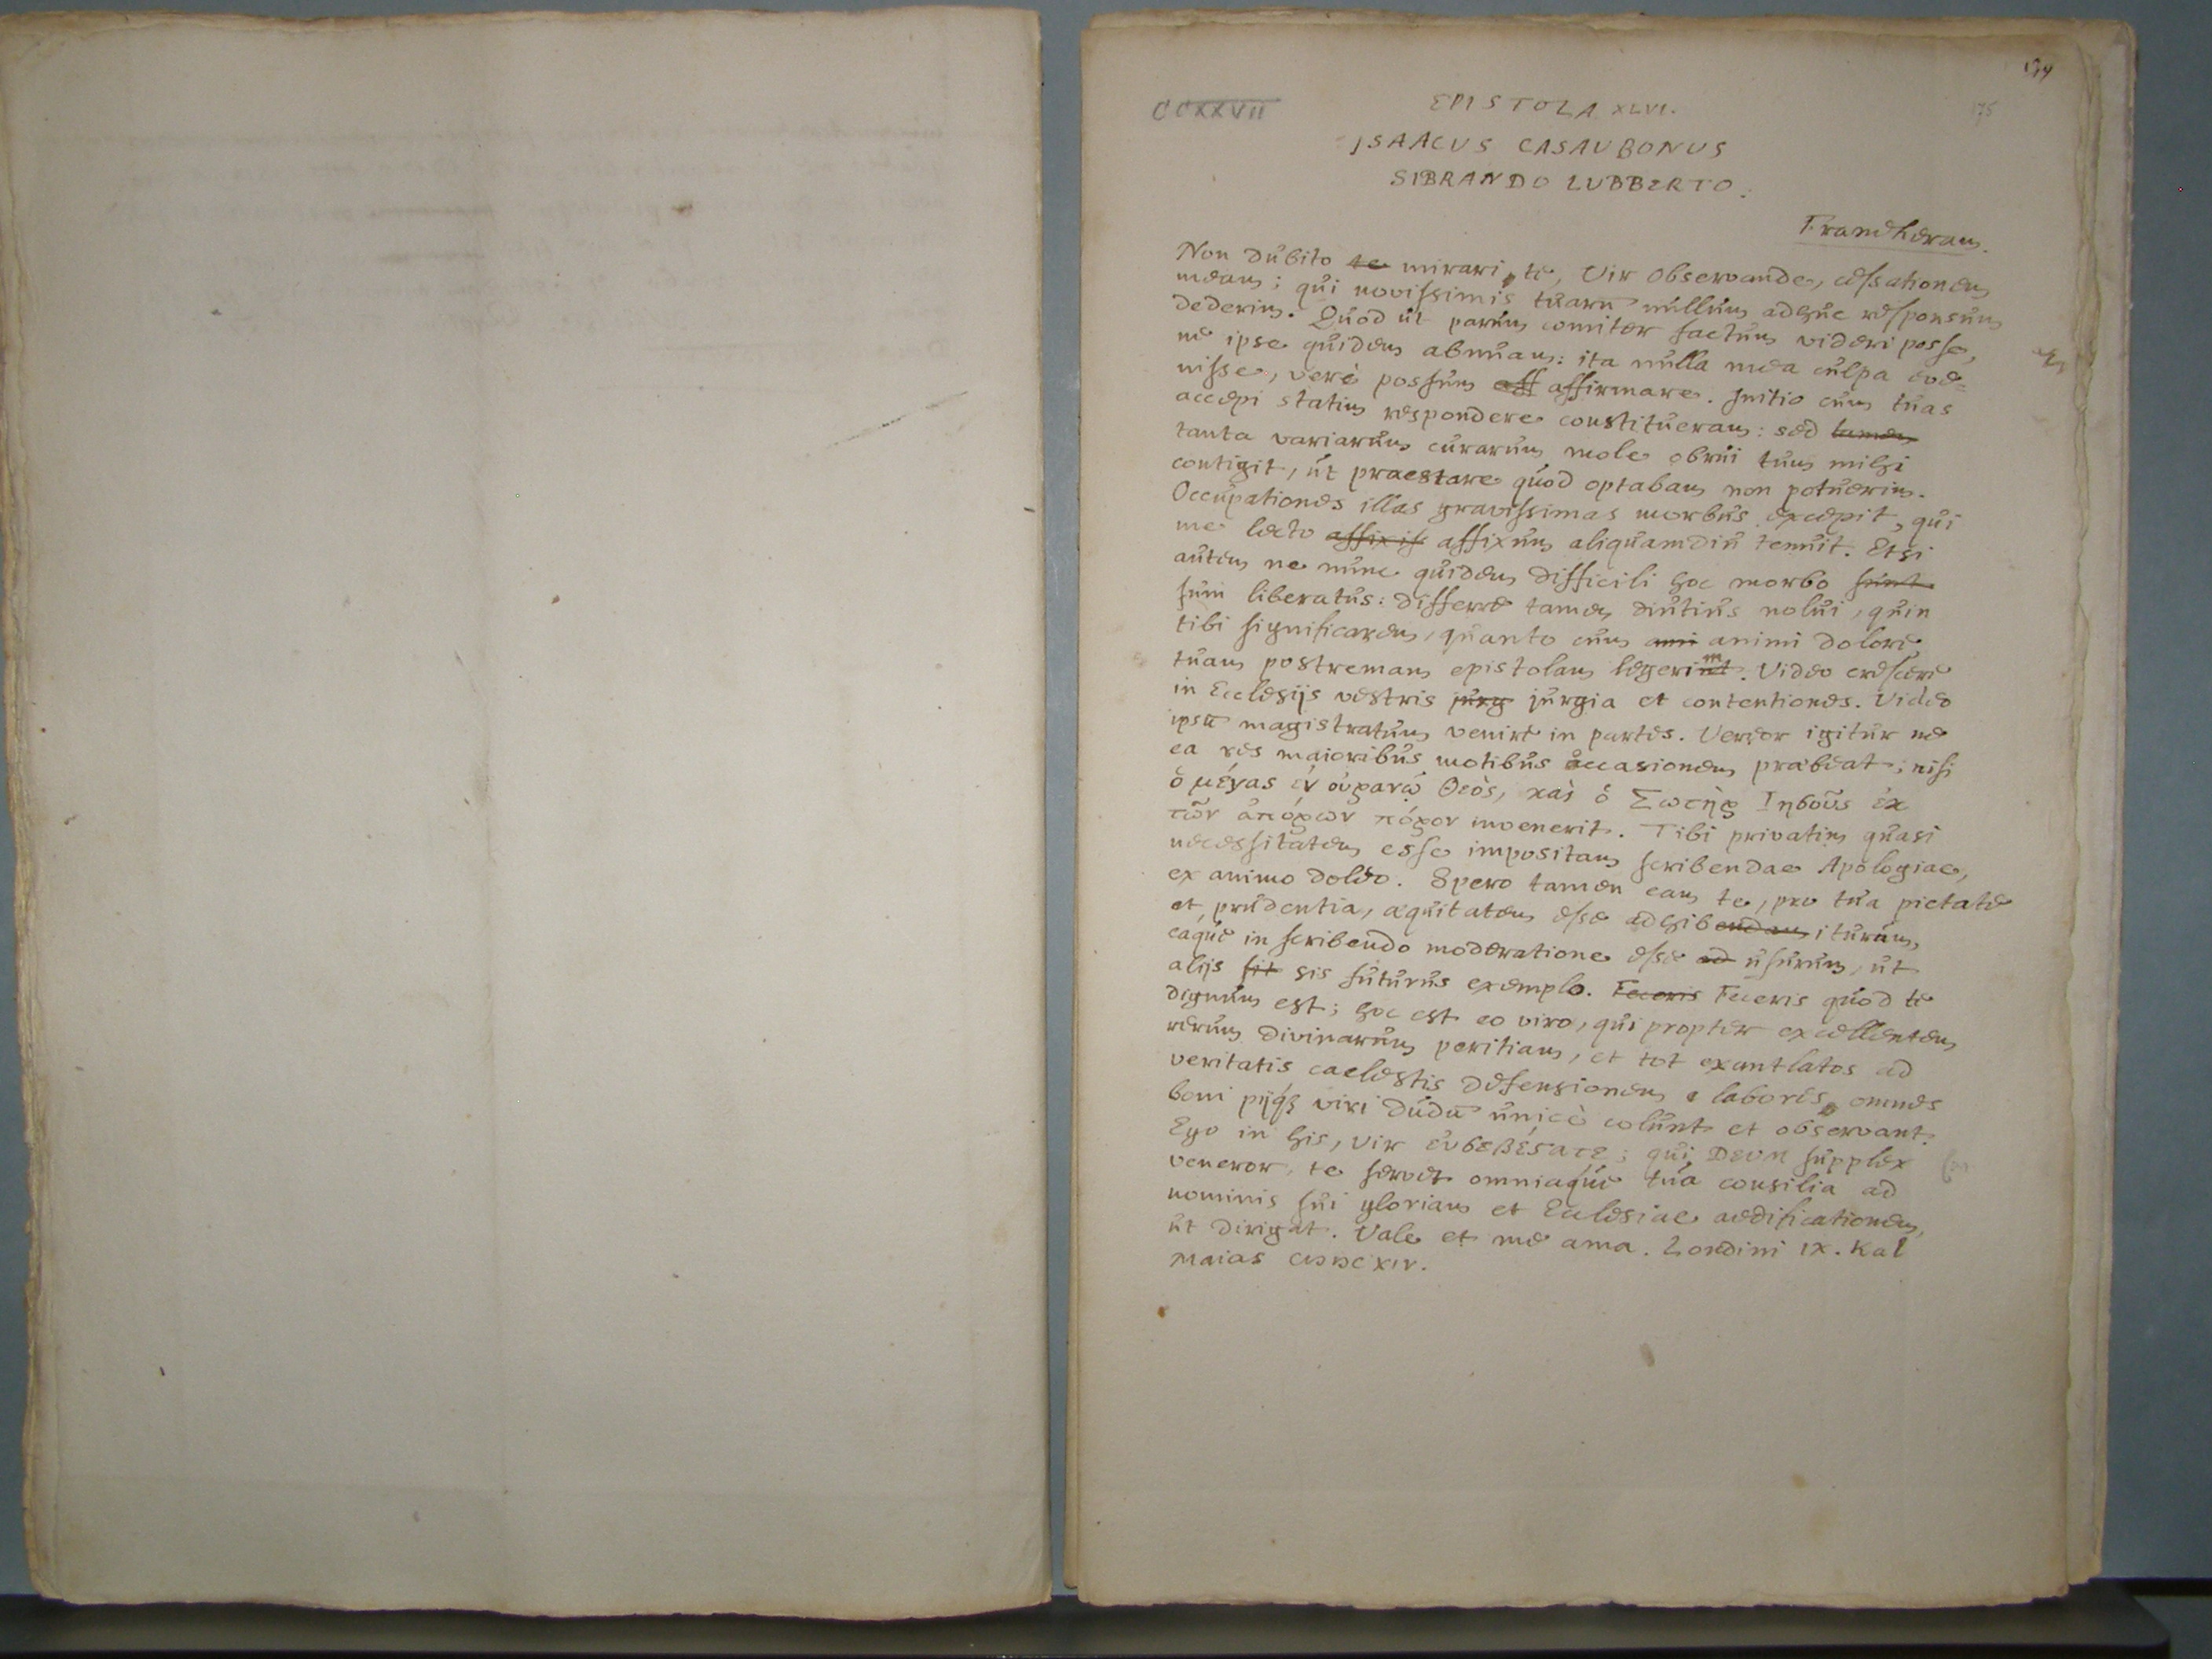 CCXXVII
EPISTOLA XLVI.
175
ISAACVS CASAVBONVS
SIBRANDO LVBBERTO.
Franekeram.
Non dubito te mirari, te, Vir Observande, cessationem
meam; qui novissimis tuarū nullum adhuc responsum
dederim. Quod ut parum comiter factum videri posse,
ne ipse quidem abnuam: ita nulla mea culpa eve=
nisse, verè possum aff affirmare. Initio cum tuas
accepi statim respondere constitueram: sed tamen
tanta variarum curarum mole obrui tum mihi
contigit, ut praestare quod optabam non potuerim.
Occupationes illas gravissimas morbus excepit, qui
me lecto affixis affixum aliquamdiu tenuit. Etsi
autem ne nunc quidem difficili hoc morbo sunt
sum liberatus: differre tamen diutius nolui, quin
tibi significarem, quanto cum ami animi dolore
tuam postremam epistolam legerim. Video crescere
in Ecclesijs vestris jurg jurgia et contentiones. Video
ipsū magistratum venire in partes. Vereor igitur ne
ea res maioribus motibus occasionem præbeat; nisi
ὁ μέγας ἐν οὐρανῷ Θεὸς, καὶ ὁ Σωτὴρ Ιησοῦς ἐκ
τῶν ἀπόρων πόρον invenerit. Tibi privatim quasi
necessitatem esse impositam scribendae Apologiae,
ex animo doleo. Spero tamen eam te, pro tua pietate
et prudentia, æquitatem esse adhibendam iturum,
eaque in scribendo moderatione esse ad usurum, ut
alijs sit sis futurus exemplo. Feceris Feceris quod te
dignum est; hoc est eo viro, qui propter excellentem
rerum divinarum peritiam, et tot exantlatos ad
veritatis caelestis defensionem labores, omnes
boni pijq; viri dudū unicè colunt et observant.
Ego in his, vir εὐσεβέϛατε; qui DEVM supplex
veneror, te servet omniaque tua consilia ad
nominis sui gloriam et Ecclesiae aedificationem,
ut dirigat. Vale et me ama. Londini IX. Kal
Maias CIƆIƆCXIV.